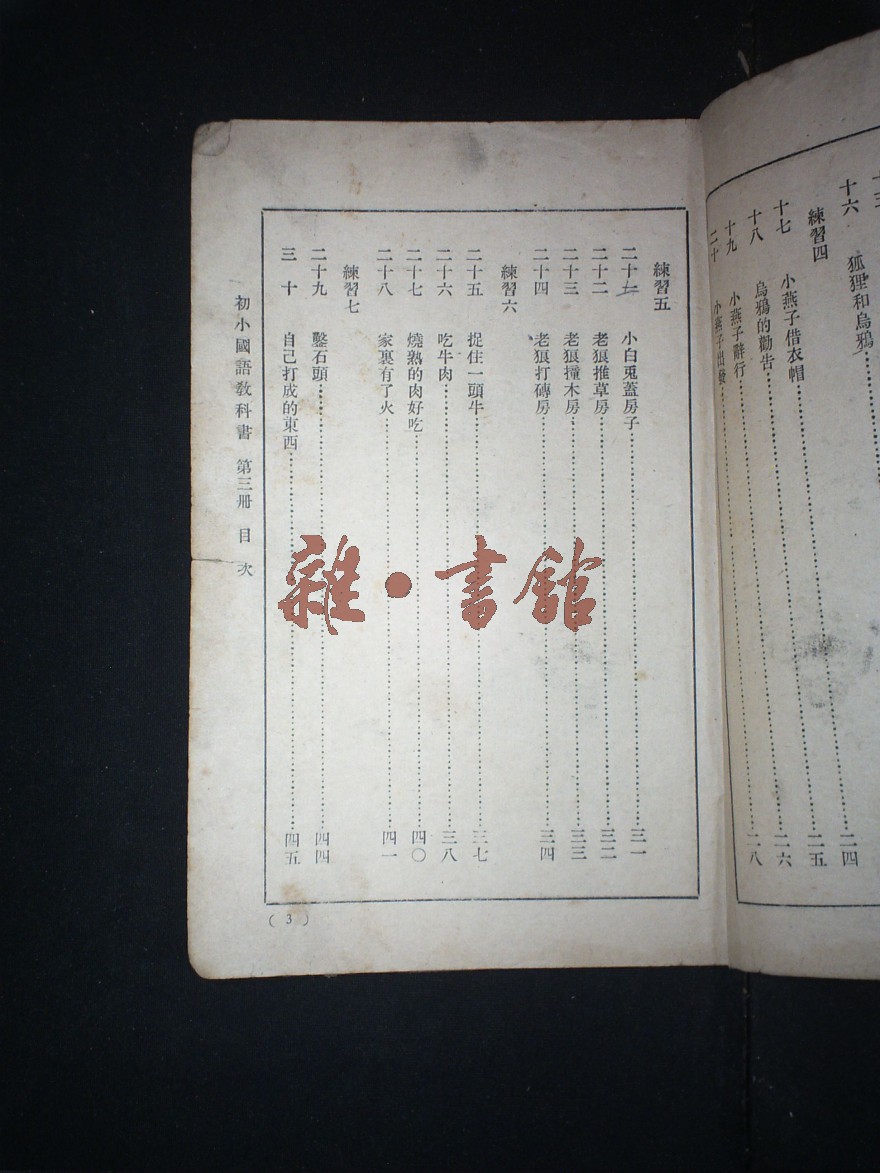 十六 狐狸和烏鴉 二四
練習四
十七 小燕子借衣帽 二五
十八 烏鴉的勸告 二六
十九 小燕子辭行 二八
二十 小燕子出發
練習五
二十一 小白兎蓋房子 三一
二十二 老狼推草房 三二
二十三 老狼撞木房 三三
二十四 老狼打磚房 三四
練習六
二十五 捉住一頭牛 三七
二十六 吃牛肉 三八
二十七 燒熟的肉好吃 四〇
二十八 家裏有了火 四一
練習七
二十九 鑿石頭 四四
三十 自己打成的東西 四五
初小國語敎科書 第三冊 目次
(3)
雜·書館